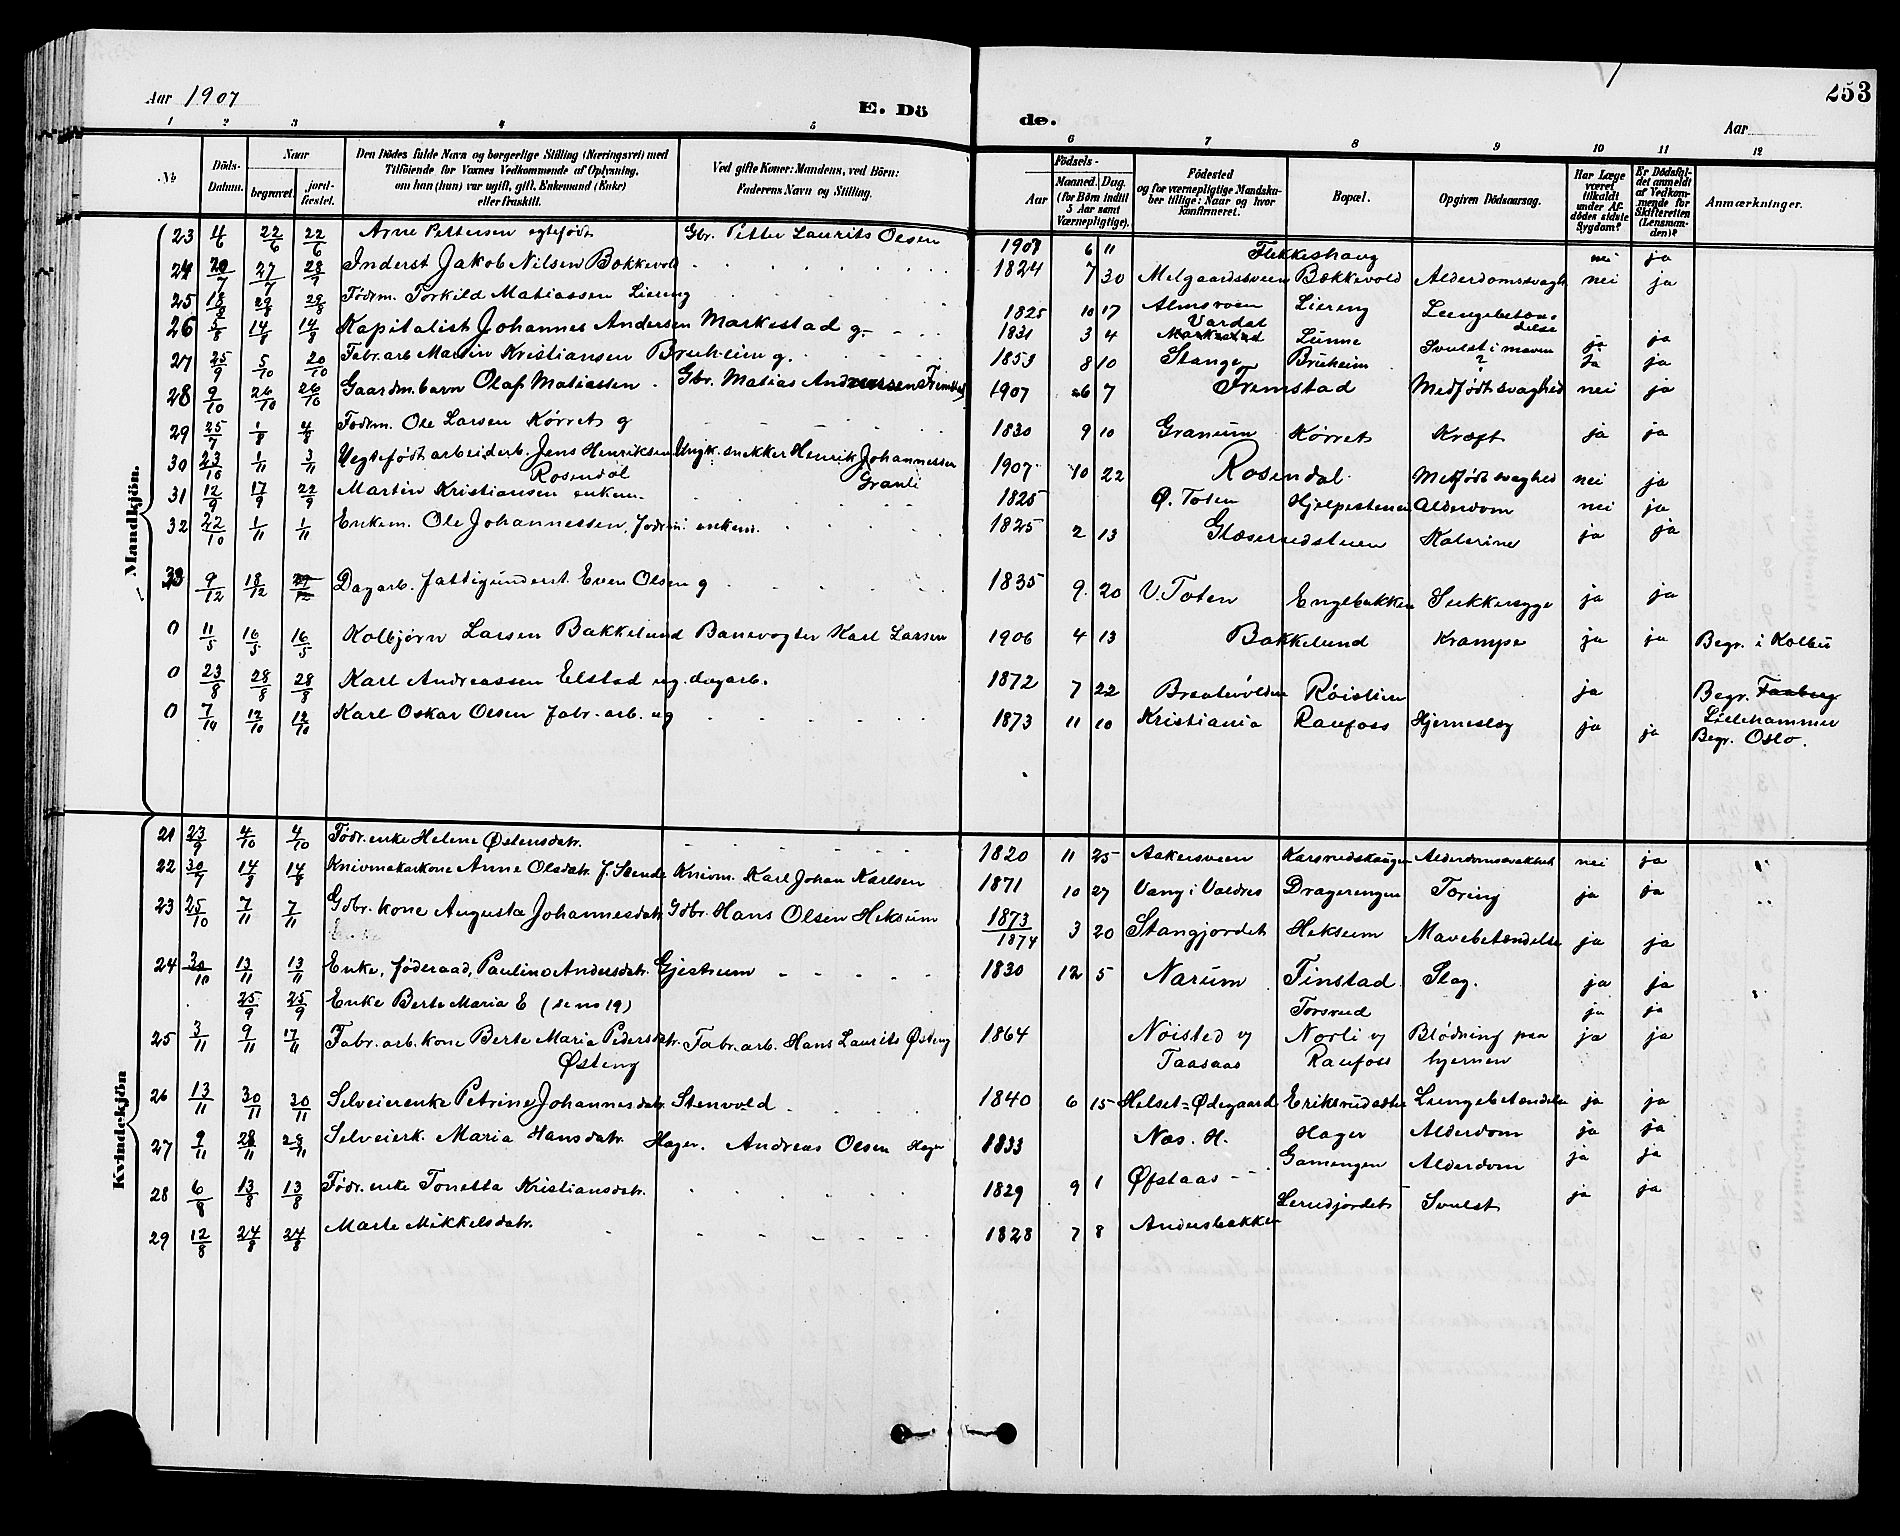 Aar 1907 E. Dö de. Aar 253
1 2 3 4 5 6 7 8 9 10 11 12
No
Döds-Datum.
Naar begravet. jord-fæstet.
Den Dödes fulde Navn og borgerlige Stilling (Næringsvei) med Tilföiende for Voxnes Vedkommende af Oplysning, om han (hun) var ugift, gift, Enkemand (Enke) eller fraskilt.
Ved gifte Koner: Mandens, ved Börn: Faderens Navn og Stilling.
Födsels-
Aar Maaned. Dag. (for Børn indtil 5 Aar samt Værnepligtige).
Födested og for værnepligtige Mandskaber tillige: Naar og hvor konfirmeret.
Bopæl.
Opgiven Dödsaarsag.
Har Læge været tilkaldt under Afdödes sidste Sygdom?
Er Dödsfaldet anmeldt af Vedkommende for Skifteretten (Lensmanden)?
Anmærkninger.
Mandkjön.
23 4/6 22/6 22/6 Arne Pettersen egtefödt Gbr. Petter Laurits Olsen 1907 6 11 Flekkeshaug nei ja
24 20/7 27/7 28/7 Inderst Jakob Nilsen Bækkevold 1824 7 30 Melgaardssveen Bækkevold Alderdomssvagh nei ja
25 18/8 29/8 29/8 Födrm. Torkild Matiassen Liereng 1825 10 17 Almsveen Liereng Lungebetændelse
26 5/8 14/8 14/8 Kapitalist Johannes Andersen Markestad g. 1831 3 4 Vardal Lunne Svulst i maven ja ja
27 25/9 5/10 20/10 Fabr. arb. Martin Kristiansen Bruheim g. 1853 8 10 Stange Bruheim ? ja ja
28 9/10 26/10 26/10 Gaardm. barn Olaf Matiassen Gbr. Matias Andreassen Fremstad 1907 6 7 Fremstad Medfödt svaghed nei ja
29 25/7 1/8 4/8 Födrm. Ole Larsen Körret g 1830 9 10 Granum Körret Kræft ja ja
30 23/10 1/11 3/11 Uegtefödt arbeiderb. Jens Henriksen Ungk. snekker Henrik Johannessen 1907 10 22 Rosendal Medfödt svaghed nei ja
Rosendal Granli
31 12/9 17/9 22/9 Martin Kristiansen enkem. 1825 Ø. Toten Hjelpestuen Alderdom nei ja
32 22/10 1/11 1/11 Enkem. Ole Johannessen, födrm. enkem. 1825 2 13 Glæserudstuen Katerine ja ja
33 9/12 18/12 Dagarb. fattigunderst. Even Olsen g 1835 9 20 V. Toten Engebakken Sukkersyge ja ja
0 11/5 16/5 16/5 Kolbjørn Larsen Bakkelund Banevogter Karl Larsen 1906 4 13 Bakkelund Krampe ja ja Begr. i Kolbu
0 23/8 28/8 28/8 Karl Andreassen Elstad ug. dagarb. 1872 7 22 Röislien ja Begr. Faaberg
Lillehammer
0 7/10 12/10 12/10 Karl Oskar Olsen fabr. arb. ug 1873 11 10 Kristiania Raufoss Hjerneslag ja ja Begr. Oslo.
Kvindekjön
21 23/9 4/10 4/10 Födr. enke Helene Østensdatr. 1820 11 25 Aakersveen Karsrudshaugen Alderdomssvakhet nei ja
22 30/7 14/8 14/8 Knivmakerkone Anne Olsdatr. f. Stende Knivm. Karl Johan Karlsen 1871 10 27 Vang i Valdres Dragerengen Tæring ja ja
23 25/10 7/11 7/11 Gdbr. kone Augusta Johannesdatr. Gdbr. Hans Olsen Heksum 1873/1874 3 20 Stangjordet Heksum Mavebetændelse ja ja
24 30/10 13/11 13/11 Enke, föderaad, Pauline Andersdatr. Gjestrum 1830 12 5 Narum Finstad Slag. ja ja
25/9 25/9 Enke Berte Maria E (se no 19) Torsrud ja ja
25 3/11 9/11 17/11 Fabr. arb. kone Berte Maria Pedersdatr. Fabr. arb. Hans Laurits Østeng 1864 Nöisted v/ Norli v/ Blödning paa ja ja
Østeng Taasaas Raufoss hjernen
26 13/11 30/11 30/11 Selveierenke Petrine Johannesdatr. Stenvold 1840 6 15 Helset=Ødegaard Lungebetændelse ja ja
27 9/11 28/11 28/11 Selveierk. Maria Hansdatr. Hager. Andreas Olsen Hager 1833 Næs. H. Hager Alderdom ja ja
28 6/8 13/8 13/8 Födr. enke Tonetta Kristiansdatr. 1829 9 1 Øfstaas Gamengen Alderdom ja ja
29 12/8 24/8 24/8 Marte Mikkelsdatr. 1828 7 8 Andersbakken Lerudjordet Svulst ja ja